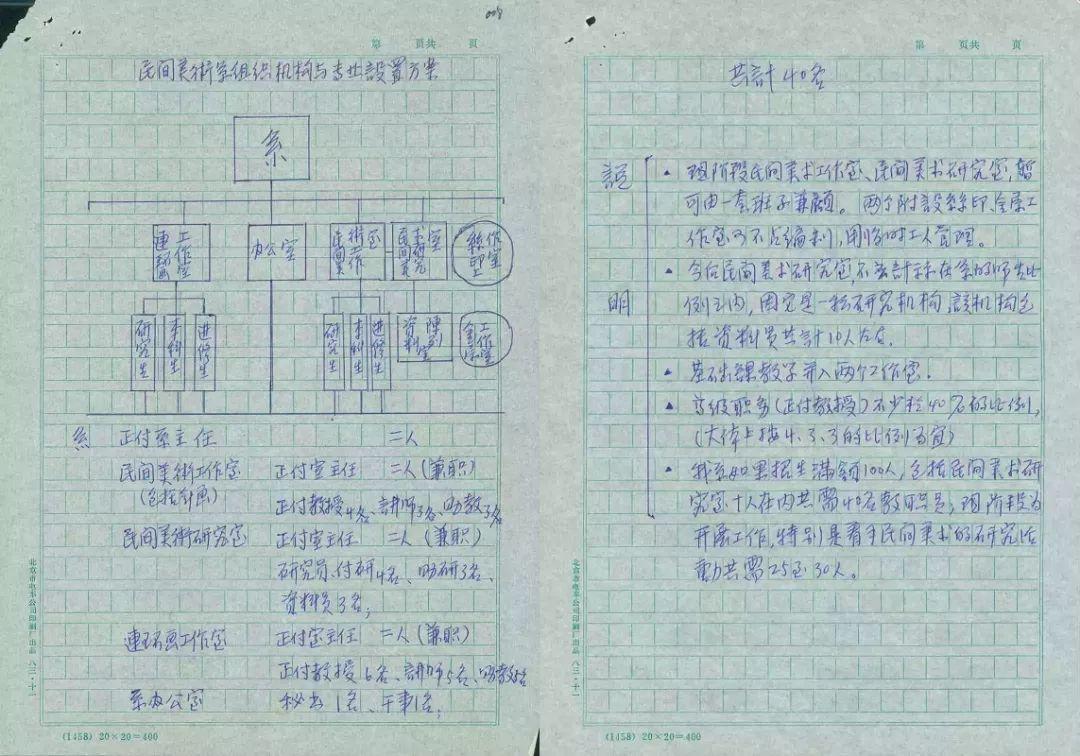 008
第 页共 页
民间美術系组织机构与专业設置方案
系
連环画工作室
办公室
民间美術工作室
民间美术研究室
絲印工作室
研究生
本科生
进修生
研究生
本科生
进修生
資料陳列室
金属工作室
系 正付系主任 二人
民间美術工作室 正付室主任 二人(兼职)
(包括年画) 正付教授4名、講师3名、助教3名
民间美術研究室 正付室主任 二人(兼职)
研究员、付研4名、助研3名、
資料员3名;
連环画工作室 正付室主任 二人(兼职)
正付教授6名、講师5名、助教名
系办公室 秘书1名、干事1名;
北京市电车公司印刷厂出品 八三·十一
(1458) 20×20=400
第 页共 页
共計40名
説明
• 现阶段民间美术工作室、民间美术研究室,暫
可由一套班子兼顧。两个附設絲印、金属工
作室可不占編制,用临时工人管理。
• 今后民间美术研究室,不該計标在系的师生比
例之内,因它是一种研究机构,該机构包
括資料员共計10人左右.
• 基础課教学并入两个工作室.
• 高级职务(正付教授)不少於40%的比例,
(大体上按4、3、3的比例为宜)
• 我系如果招生满额100人,包括民间美术研
究室十人在内共需40名教职員;现阶段为
开展工作,特别是着手民间美术的研究活
動共需25至30人。
北京市电车公司印刷厂出品 八三·十一
(1458) 20×20=400